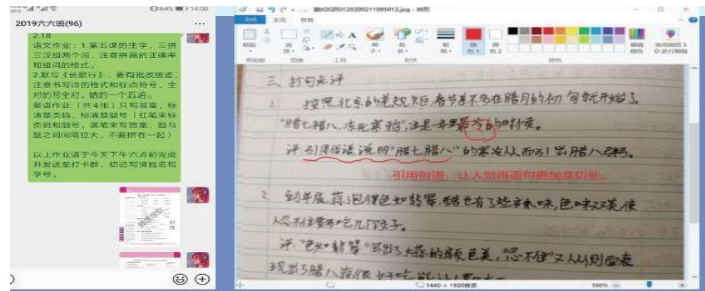 14:00
2019六六班(96)
2.18
语文作业：1.第五课的生字，三拼
三汉组两个词，注意拼音的正确率
和组词的格式。
2.默写《长歌行》，要有批改痕迹，
注意书写诗的格式和标点符号，全
对的写全对，错的一个五遍。
英语作业（共4张）只写答案，标
清楚页码，标清楚题号（红笔来标
页码和题号，黑笔来写答案，题与
题之间间隔拉大，不要挤在一起）
以上作业请于今天下午六点前完成
并发送至打卡群，切记写清姓名和
学号。
文件 主页 查看
粘贴
选择
形状
粗细
颜色 1
颜色 2
剪贴板 图像 工具 形状 颜色
三、抄句点评
1. 按照北京的老规矩,春节差不多在腊月的初旬就开始了。
“腊七腊八,冻死寒鸦”,这是一年里最冷的时候。
评:引用俗语说明“腊七腊八”的寒冷从而引出腊八粥。
引用俗语，让人觉得语句更加亲切些。
2. 到年底,蒜泡得色如翡翠,醋也有了些辣味,色味双美,使
人忍不住要多吃几个饺子。
评:“色如翡翠”写出了大蒜的颜色美,“忍不住”又从侧面表
现出了腊八蒜
1440 × 1920像素
100%